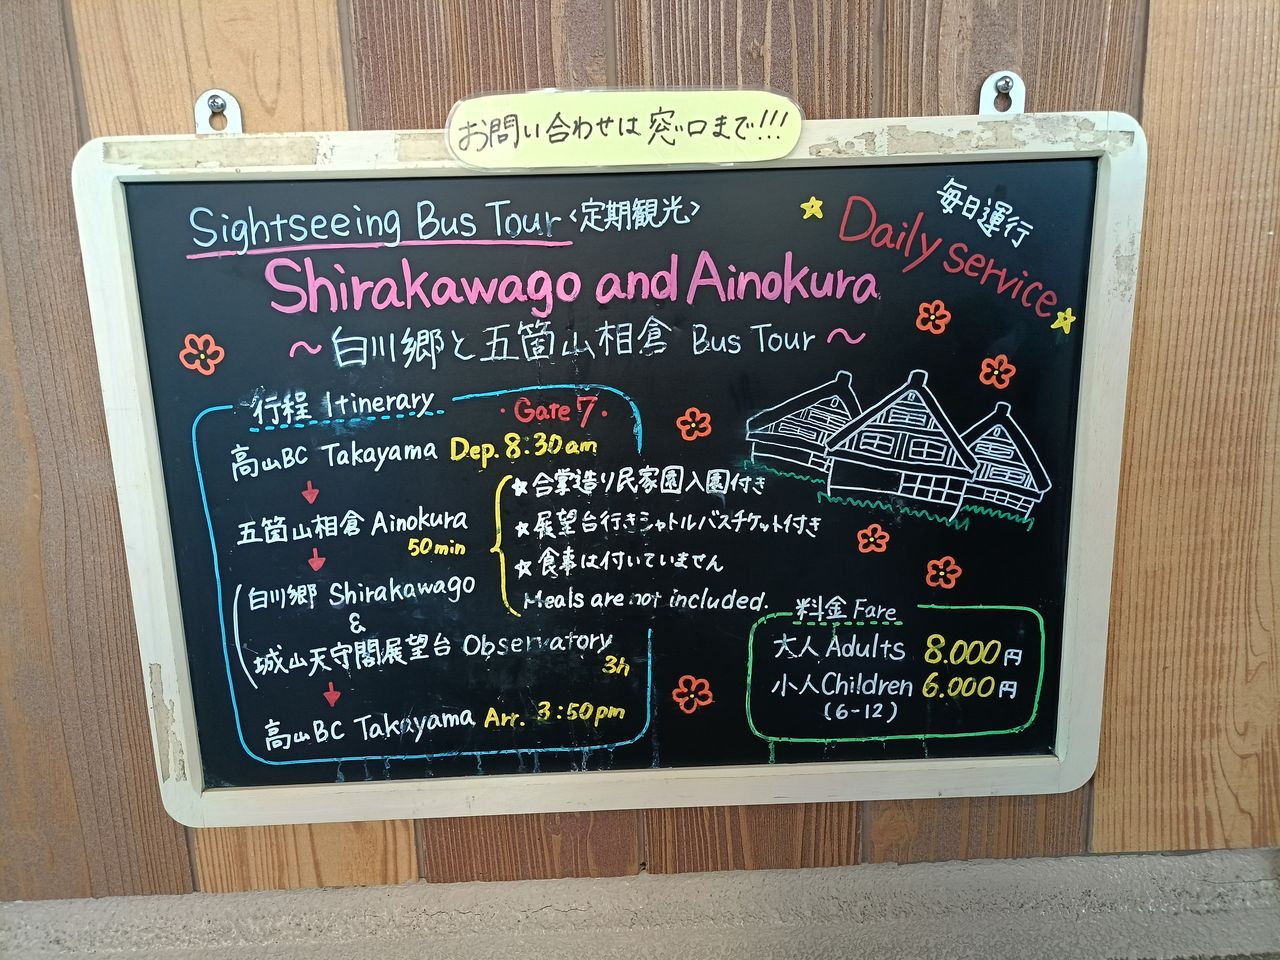 お問い合わせは窓口まで!!!
Sightseeing Bus Tour <定期観光>
毎日運行
Daily service
Shirakawago and Ainokura
～白川郷と五箇山相倉 Bus Tour～
行程 Itinerary
・Gate 7・
高山BC Takayama Dep. 8:30am
五箇山相倉 Ainokura
50min
白川郷 Shirakawago
&
城山天守閣展望台 Observatory
3h
高山BC Takayama Arr. 3:50pm
☆合掌造り民家園入園付き
☆展望台行きシャトルバスチケット付き
☆食事は付いていません
Meals are not included.
料金 Fare
大人 Adults 8.000円
小人 Children 6.000円
(6-12)